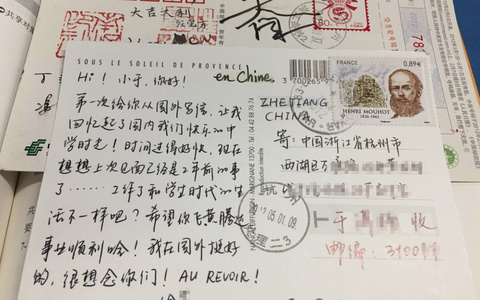 大吉大利
SOUS LE SOLEIL DE PROVENCE
Hi！小于，你好！
en Chine,
第一次给你从国外写信，让我
回忆起了国内我们快乐的中
学时光！时间过得好快，现在
想想上次见面已经是2年前的事
了……工作了和学生时代的生
活不一样吧？希望你飞黄腾达
事业顺利哈！我在国外挺好
的，很想念你们！AU REVOIR！
3 700263 9
Reproduction interdite
FRANCE
0,89€
HENRI MOUHOT
1826-1861
ZHEJIANG
CHINA
寄：中国浙江省杭州市
西湖区
于
收
邮编：3100
杭州
05.01.09
80